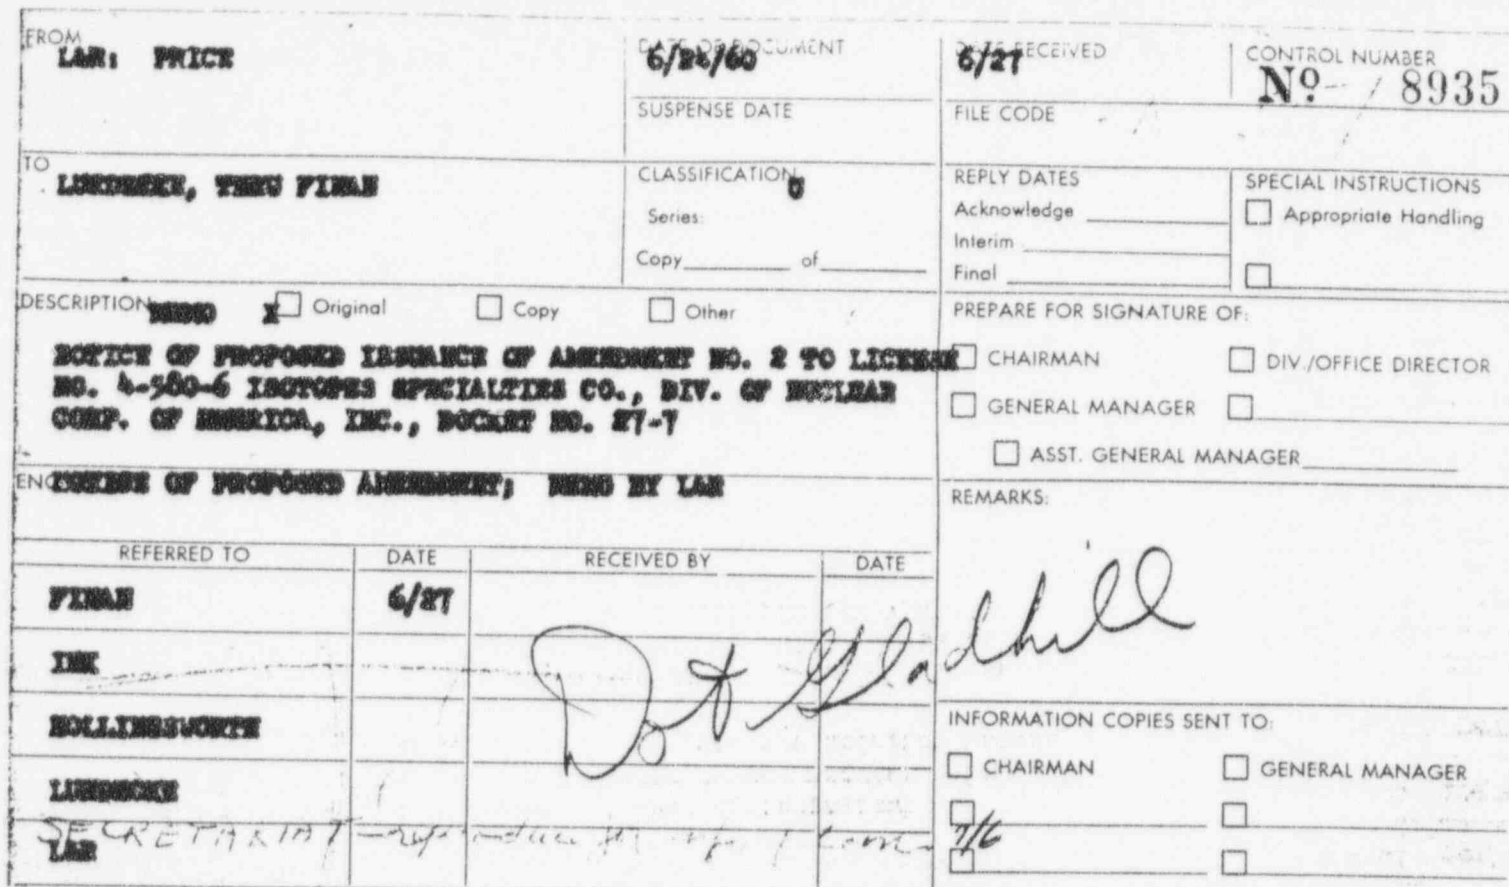 FROM
L&R: PRICE
DATE OF DOCUMENT
6/24/60
DATE RECEIVED
6/27
CONTROL NUMBER
Nº 8935
SUSPENSE DATE
FILE CODE
TO
LUEDECKE, THRU FINAN
CLASSIFICATION
U
Series:
Copy of
REPLY DATES
Acknowledge
Interim
Final
SPECIAL INSTRUCTIONS
Appropriate Handling
DESCRIPTION MEMO X Original Copy Other
NOTICE OF PROPOSED ISSUANCE OF AMENDMENT NO. 2 TO LICENSE
NO. 4-580-6 ISOTOPES SPECIALTIES CO., DIV. OF NUCLEAR
CORP. OF AMERICA, INC., DOCKET NO. 27-7
PREPARE FOR SIGNATURE OF:
CHAIRMAN
DIV./OFFICE DIRECTOR
GENERAL MANAGER
ASST. GENERAL MANAGER
NOTICE OF PROPOSED AMENDMENT; MEMO BY L&R
REMARKS:
REFERRED TO DATE RECEIVED BY DATE
FINAN 6/27
INK
HOLLINGSWORTH
LUEDECKE
L&R
Dot Gladhill
SECRETARIAT
7/6
INFORMATION COPIES SENT TO:
CHAIRMAN
GENERAL MANAGER